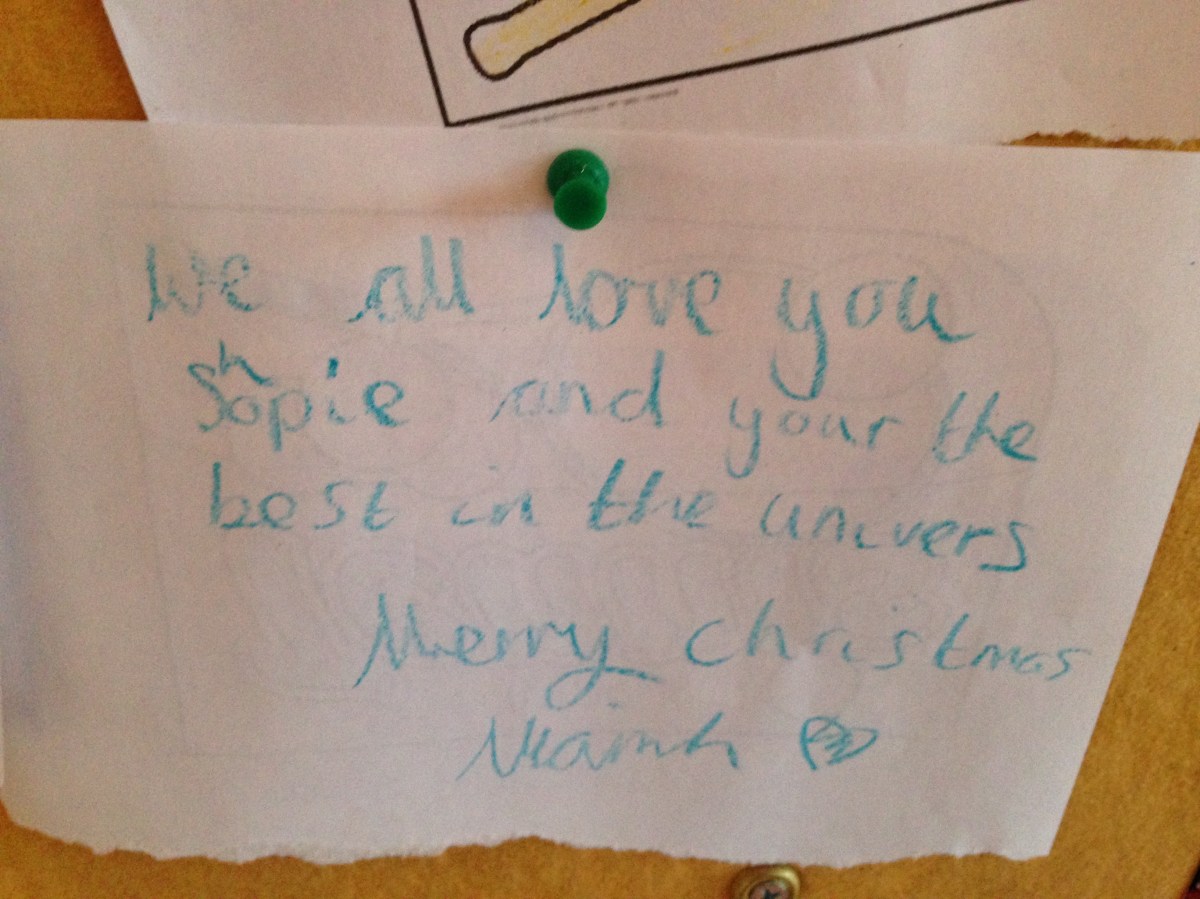 We all love you
Sophie and your the
best in the univers
Merry christmas
Niamh